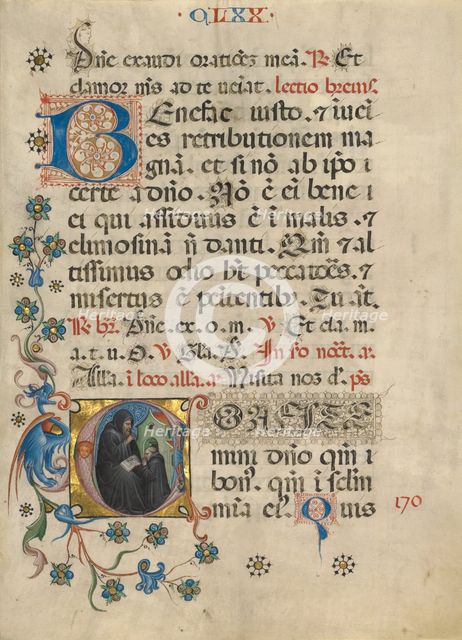 · CLXX ·
Dñe exaudi orationẽs meã. R̃ Et
clamor mṡ ad te ueiat. lectio breuis.
Benefac iusto. et inueni
es retributionem ma
gnã. et si nõ ab ipo i
certe a dño. Nõ ẽ ei bene i
ei qui assiduus ẽ i malis. et
elimosinã ñ danti. Qm̃ et al
tissimus odio ht peccatões. et
misertus ẽ penitentib. Tu at.
R̃ br. Dñe. ex. o. m. V Et cla. m.
a. t. u. V Gla. In fo noct. a.
Alla. i loco alla. a. Uisita nos d. ps
Confite
mini dño qm̃ i
bonꝰ. qm̃ i seclm̃
mia eiꝰ. Quis
170
Heritage
Images